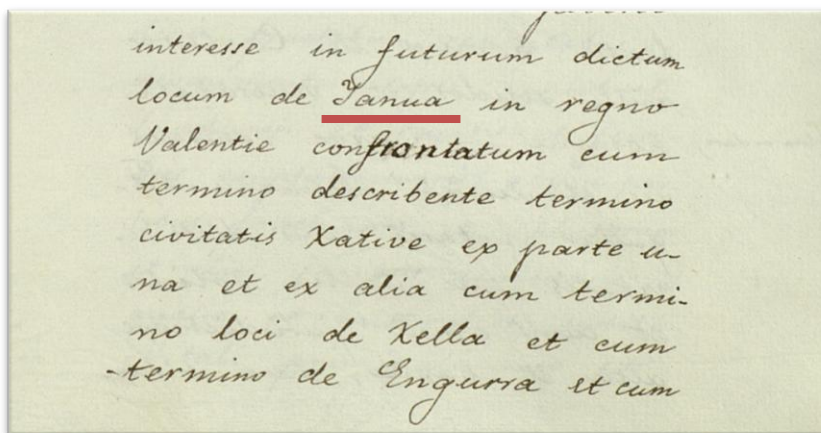 interesse in futurum dictum
locum de Ianua in regno
Valentie confrontatum cum
termino describente termino
civitatis Xative ex parte u-
na et ex alia cum termi-
no loci de Xella et cum
-termino de Engurra et cum